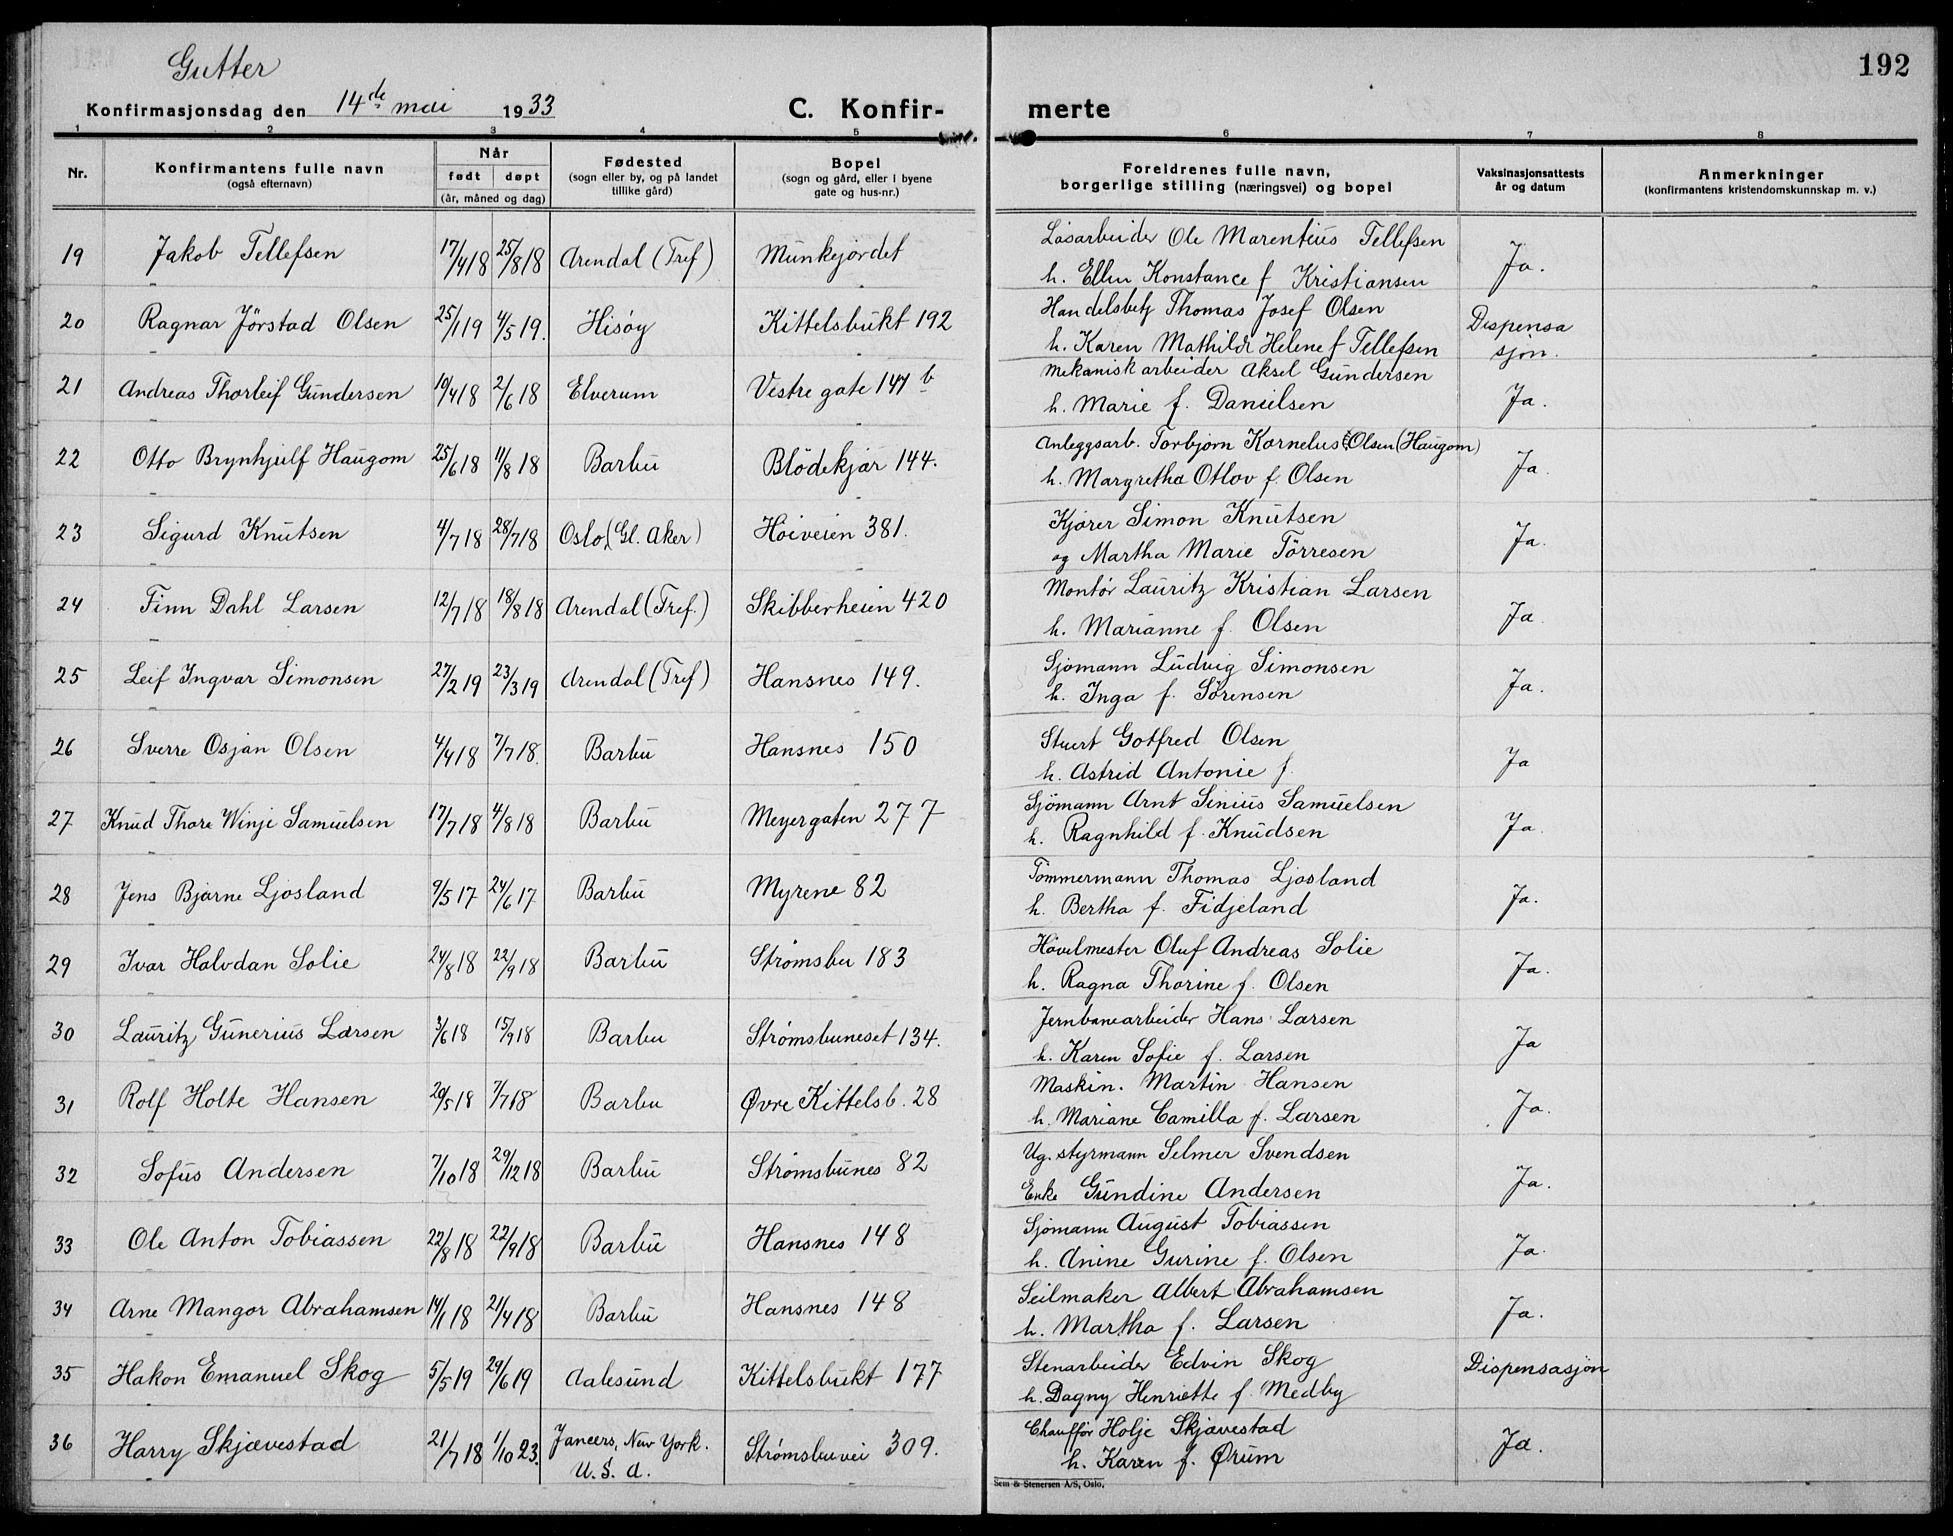 Gutter
192
Konfirmasjonsdag den 14de mai 1933
C. Konfir-
merte
1 2 3 4 5 6 7 8
Nr. | Konfirmantens fulle navn (også efternavn) | Når født | døpt (år, måned og dag) | Fødested (sogn eller by, og på landet tillike gård) | Bopel (sogn og gård, eller i byene gate og hus-nr.) | Foreldrenes fulle navn, borgerlige stilling (næringsvei) og bopel | Vaksinasjonsattests år og datum | Anmerkninger (konfirmantens kristendomskunnskap m. v.)
19 Jakob Tellefsen 17/4 18 25/8 18 Arendal (Tref) Munkejordet Løsarbeider Ole Marentius Tellefsen Ja.
h. Ellen Konstance f Kristiansen
20 Ragnar Jörstad Olsen 25/1 19 4/5 19. Hisöy Kittelsbukt 192 Handelsbetj Thomas Josef Olsen Dispensa
h. Karen Mathilde Helene f Tellefsen sjon.
21 Andreas Thorleif Gundersen 19/4 18 2/6 18 Elverum Vestre gate 147 b Mekanisk arbeider Aksel Gundersen
h. Marie f. Danielsen Ja.
22 Otto Brynhjulf Haugom 25/6 18 11/8 18 Barbu Blödekjær 144. Anleggsarb. Torbjørn Kornelius Olsen (Haugom)
h. Margretha Otlov f. Olsen Ja.
23 Sigurd Knutsen 4/7 18 28/7 18 Oslo, (Gl. Aker) Höiveien 381. Kjører Simon Knutsen Ja.
og Martha Marie Törresen
24 Finn Dahl Larsen 12/7 18 18/8 18 Arendal (Tref.) Skibberheien 420 Montör Lauritz Kristian Larsen Ja
h. Marianne f. Olsen
25 Leif Ingvar Simonsen 27/2 19 23/3 19 Arendal (Tref) Hansnes 149. Sjömann Ludvig Simonsen Ja.
h. Inga f. Sörensen
26 Sverre Osjan Olsen 4/4 18 7/7 18. Barbu Hansnes 150 Stuert Gotfred Olsen Ja
h. Astrid Antonie f.
27 Knud Thore Winje Samuelsen 17/7 18 4/8 18 Barbu Meyergaten 277 Sjömann Arnt Sinius Samuelsen Ja.
h. Ragnhild f. Knudsen
28 Jens Bjarne Ljosland 9/5 17 24/6 17 Barbu Myrene 82 Tömmermann Thomas Ljosland Ja.
h. Bertha f. Fidjeland
29 Ivar Halvdan Solie 24/8 18 22/9 18 Barbu Strømsbu 183 Hövelmester Oluf Andreas Solie Ja.
h. Ragna Thorine f. Olsen
30 Lauritz Gunerius Larsen 3/6 18 15/9 18 Barbu Strømsbuneset 134. Jernbanearbeider Hans Larsen Ja
h. Karen Sofie f. Larsen
31 Rolf Holte Hansen 20/5 18 7/7 18 Barbu Øvre Kittelsb. 28 Maskin. Martin Hansen Ja.
h. Mariane Camilla f. Larsen
32 Sofus Andersen 7/10 18 29/12 18 Barbu Strømsbunes 82 Ug. styrmann Selmer Svendsen Ja.
Enke Gundine Andersen
33 Ole Anton Tobiassen 22/8 18 22/9 18 Barbu Hansnes 148 Sjömann August Tobiassen Ja.
h. Anine Gurine f. Olsen
34 Arne Mangor Abrahamsen 14/1 18 21/4 18 Barbu Hansnes 148 Seilmaker Albert Abrahamsen Ja.
h. Martha f. Larsen
35 Hakon Emanuel Skog 5/5 19 29/6 19 Aalesund Kittelsbukt 177 Stenarbeider Edvin Skog Dispensasjon
h. Dagny Henriette f. Medby
36 Harry Skjævestad 21/7 18 1/10 23. Jancers, New York. Strømsbuvei 309. Chauffør Holje Skjævestad Ja.
U.S.A. h. Karen f. Ørum
Sem & Stenersen A/S, Oslo.